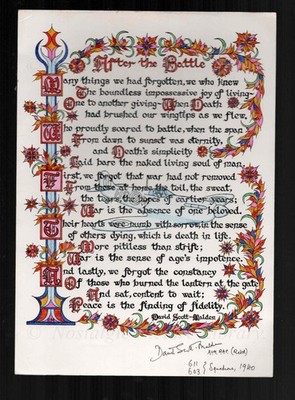 After the Battle
Many things we had forgotten, we who knew
The boundless impossessive joy of living
One to another giving. When Death
had brushed our wingtips as we flew,
Who proudly soared to battle, when the span
From dawn to sunset was eternity,
and Death's simplicity
Laid bare the naked living soul of man,
First, we forgot that war had not removed
From those at home the toil, the sweat,
the tears, the hopes of earlier years;
War is the absence of one beloved.
Their hearts were numb with sorrow, in the sense
of others dying, which is death in life.
More pitiless than strife;
War is the sense of age's impotence.
And lastly, we forgot the constancy
Of those who burned the lantern at the gate
And sat, content to wait;
Peace is the finding of fidelity.
David Scott-Malden
David Scott-Malden
611
603 } Squadrons, 1940
Nostalgia